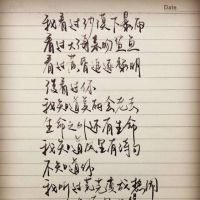 Date
我看过沙漠下暴雨
看过大海亲吻鲨鱼
看过黄昏追逐黎明
没看过你
我知道美丽会老去
生命之外还有生命
我知道风里有诗句
不知道你
我听过荒芜变成热闹